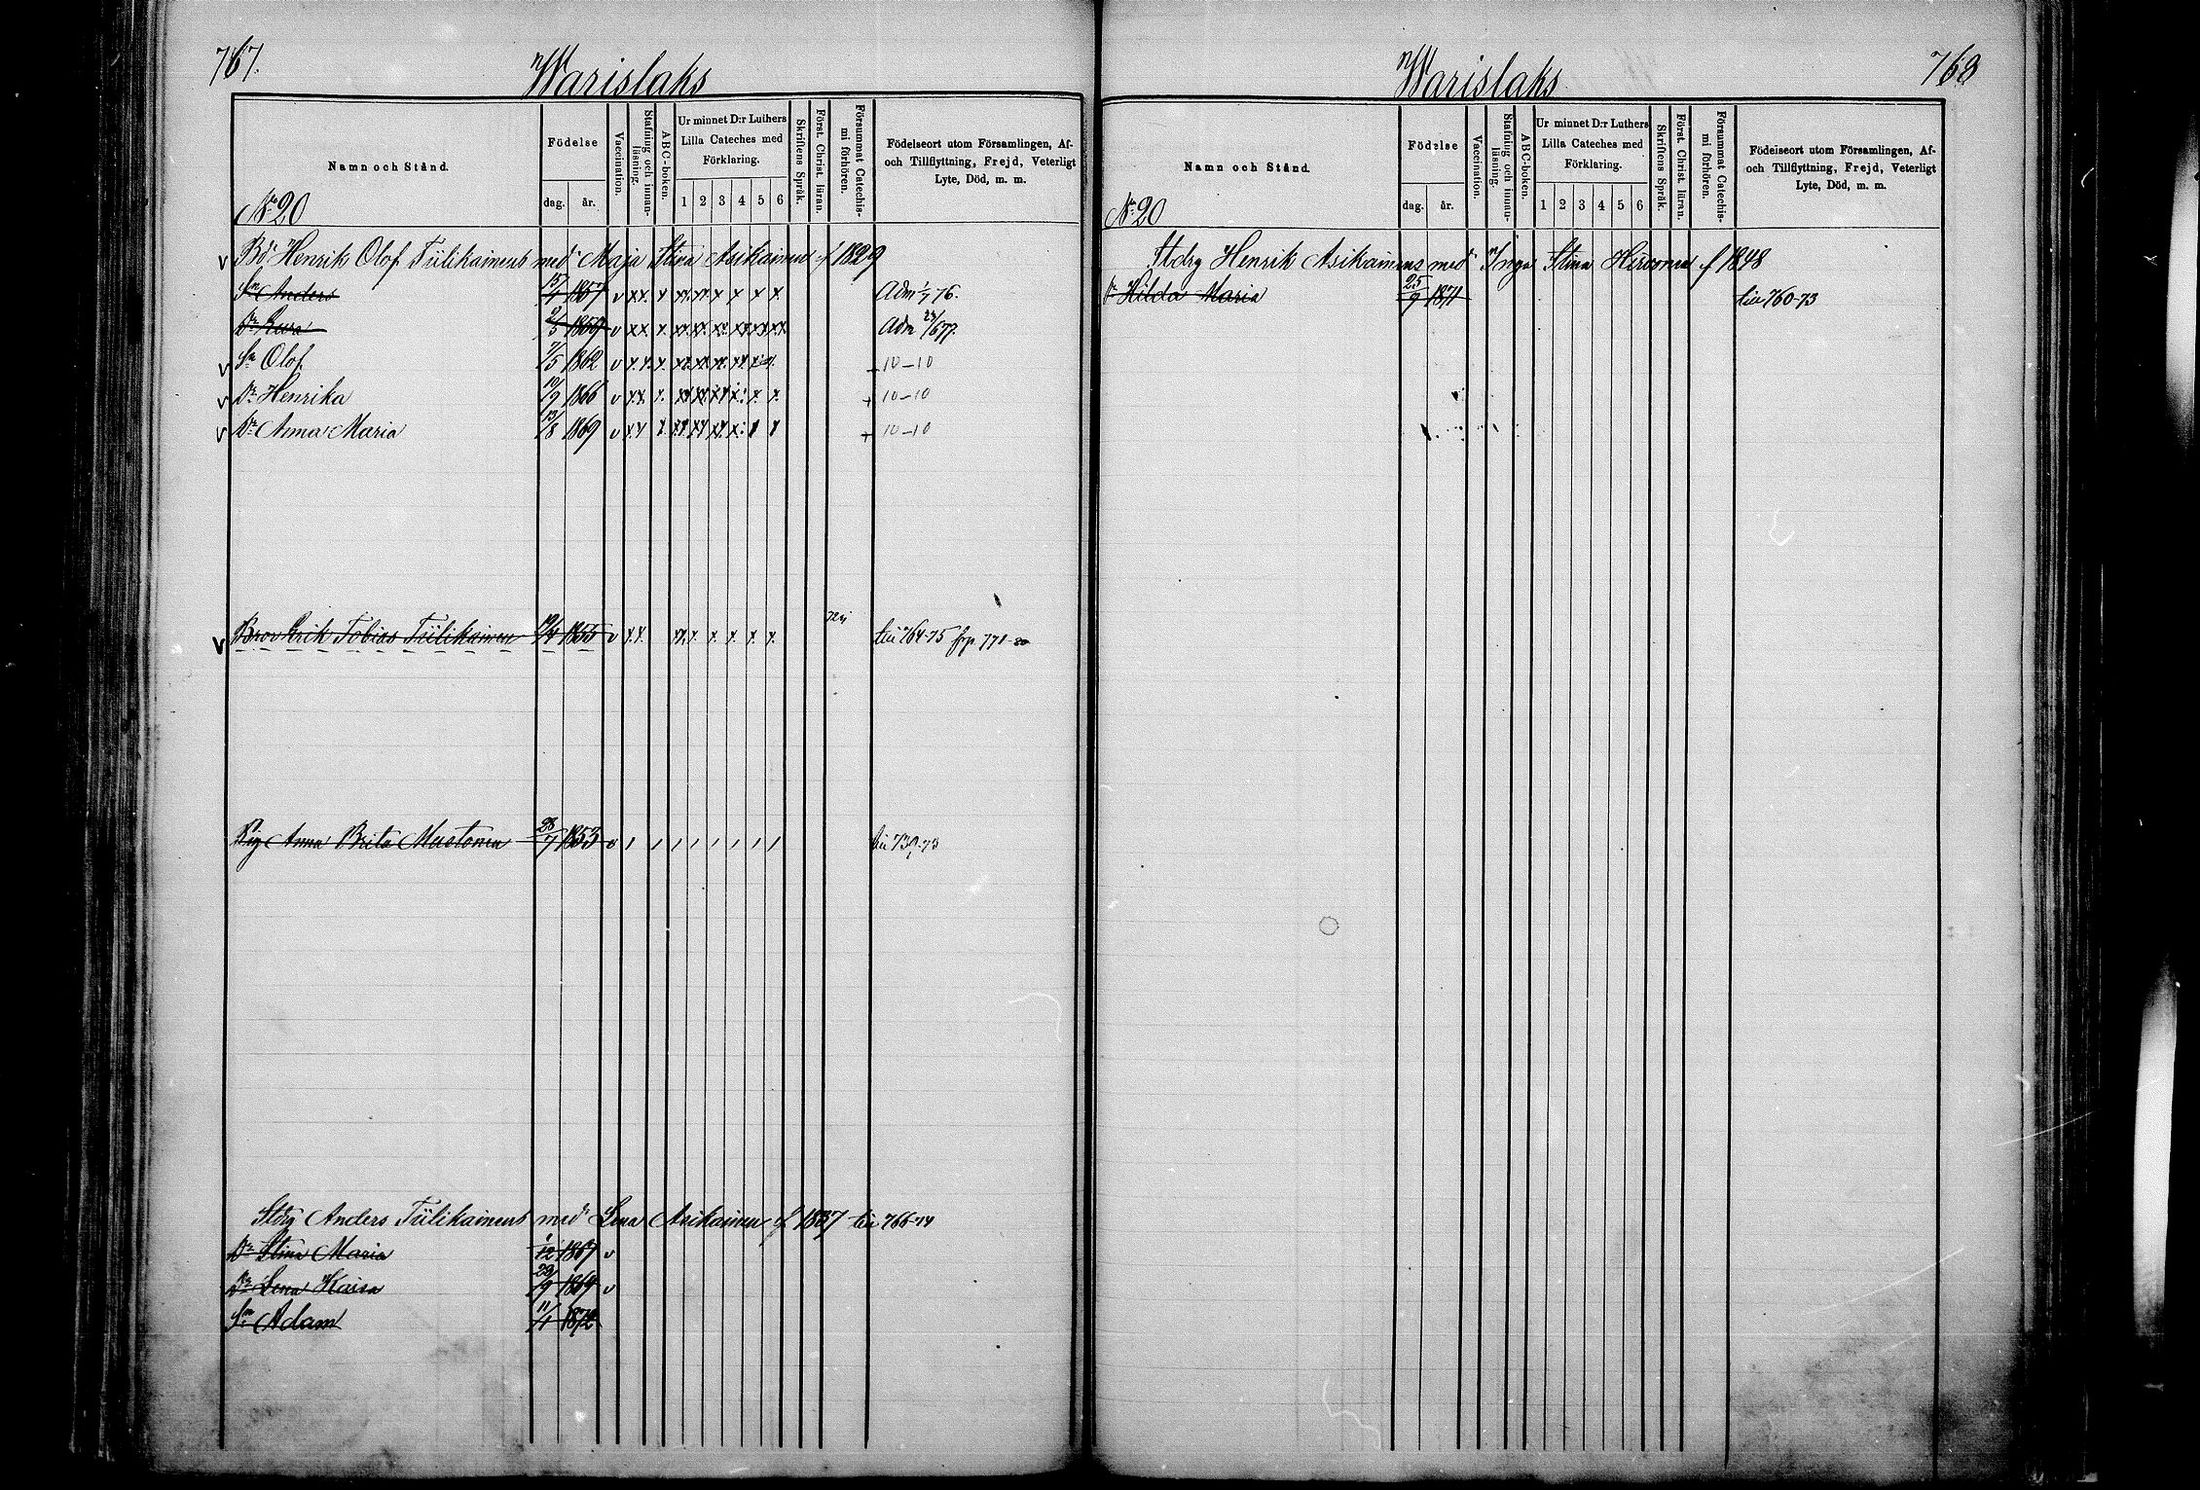 767.
Warislaks
Namn och Stånd.
Födelse
dag.
år.
Vaccination.
Stafning och innan-
läsning.
ABC-boken.
Ur minnet D:r Luthers
Lilla Cateches med
Förklaring.
1 2 3 4 5 6
Skriftens Språk.
Först. Christ. läran.
Försummat Catechis-
mi förhören.
Födelseort utom Församlingen, Af-
och Tillflyttning, Frejd, Veterligt
Lyte, Död, m. m.
No 20
v Bd Henrik Olof Tiilikainens med Maja Stina Asikainen f 1829
Sn Anders 1857 v xx x x x x x Adm 1/7 76.
Dr 2/5 1859 v xx x Adm 23/6 77.
v Sn Olof 7/5 1862 v x x x 10-10
v Dr Henrika 19/9 1866 v x x x 10-10
v Dr Anna Maria 13/8 1869 v x x 10-10
v Brov Erik Tobias Tiilikainen 19/4 1855 v x x x x x x x till 764-75 frp 771-80
Pig Anna Brita Mustonen 28/7 1853 v till 739-73
Stdrg Anders Tiilikainens med Lena Asikainen f 1837 till 766-74
Dr Stina Maria 1/12 1867 v
Dr Lena Kaisa 29/9 1869 v
Sn Adam 11/4 1872
768
Warislaks
Namn och Stånd.
Födelse
dag.
år.
Vaccination.
Stafning och innan-
läsning.
ABC-boken.
Ur minnet D:r Luthers
Lilla Cateches med
Förklaring.
1 2 3 4 5 6
Skriftens Språk.
Först. Christ. läran.
Försummat Catechis-
mi förhören.
Födelseort utom Församlingen, Af-
och Tillflyttning, Frejd, Veterligt
Lyte, Död, m. m.
No 20
Stdrg Henrik Asikainens med Inga Stina Hirvonen f 1848
Dr Hilda Maria 25/9 1871 till 760-73